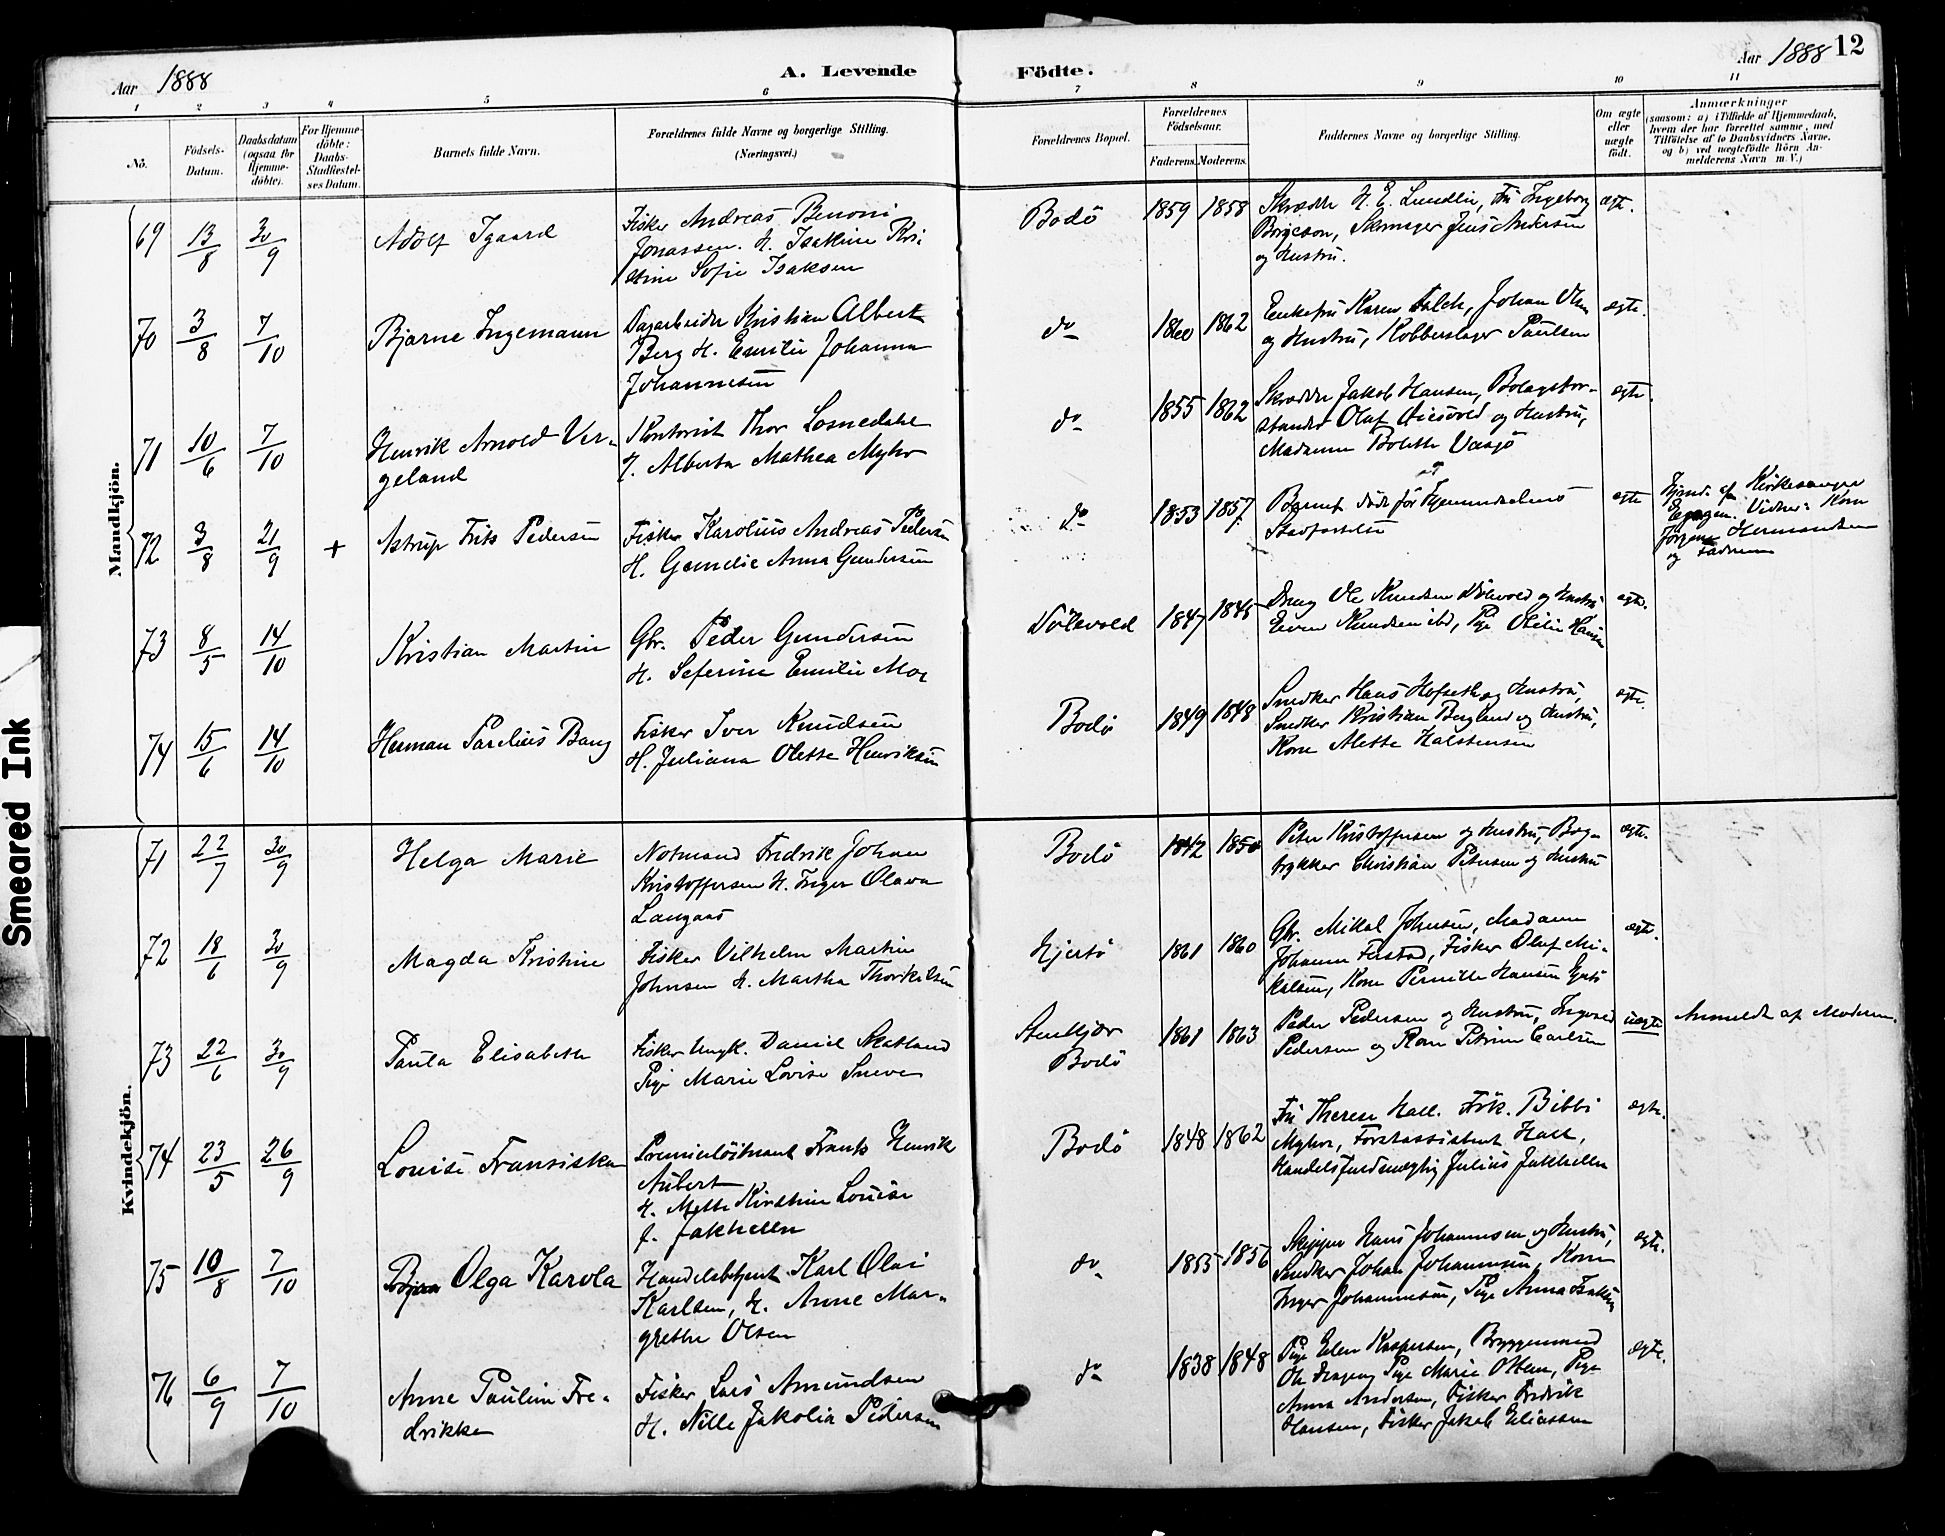 Aar 1888
A. Levende Födte.
Aar 1888 12
1 2 3 4 5 6 7 8 9 10 11
No.
Födsels-Datum.
Daabsdatum (ogsaa for Hjemmedöbte).
For Hjemmedöbte: Daabs-Stadfæstelses Datum.
Barnets fulde Navn.
Forældrenes fulde Navne og borgerlige Stilling.
(Næringsvei.)
Forældrenes Bopæl.
Forældrenes Födselsaar.
Faderens. Moderens.
Faddernes Navne og borgerlige Stilling.
Om ægte eller uægte født.
Anmærkninger
(saasom: a) i Tilfælde af Hjemmedaab,
hvem der har forrettet samme, med
Tilföielse af to Daabsvidners Navne,
og b) ved uægtefödte Börn An-
melderens Navn m. V.)
Mandkjön.
69 13/8 30/9 Adolf Igaard Fisker Andreas Benoni Bodö 1859 1858 Skrædder H. E. Lundlin, Fru Ingeborg ægte.
Jonassen. H. Isakine Kri- Skomager Jens Andersen
stine Sofie Isaksen og Hustru.
70 3/8 7/10 Bjarne Ingemann Dagarbeider Kristian Albert do 1860 1862 Enkefru Karen Falch, Johan Olsen ægte.
Berg H. Emilie Johanna og Hustru, Kobberslager Paulsen
Johannesen
71 10/6 7/10 Henrik Arnold Ver- Kontorist Thor Losnedahl do 1855 1862 Skrædder Jakob Hansen, Bolagsfor- ægte
geland H. Alberta Mathea Myhre stander Olaf og Hustru,
Madamme Bolette Vaagö
72 3/8 21/9 + Astrup Frits Pedersen Fisker Karolius Andreas Pedersen do 1853 1857 Barnet döde för Hjemmedaabens ægte Hjemd. af Kirkesanger
H. Gundelie Anna Gundersen Stadfæstelse Vidner: Kone
Jörgine Hermandsen
og Faderen
73 8/5 14/10 Kristian Martin Gbr. Peder Gundersen 1847 1845 Dreng Ole Knudsen og Hustru ægte.
H. Seferine Emilie Moe Even Knudsen ibd, Pige Otilie Hansen
74 15/6 14/10 Herman Parelius Bang Fisker Iver Knudsen Bodö 1849 1848 Snedker Hans Hofseth og Hustru, ægte.
H. Juliana Olette Henriksen Snedker Kristian Berglund og Hustru,
Kone Alette Halstensen
Kvindekjön.
71 22/7 30/9 Helga Marie Notmand Fredrik Johan Bodö 1842 1850 Peter Kristoffersen og Hustru, Bog- ægte.
Kristoffersen H. Inger Olava trykker Christian Petersen og Hustru
Langaas
72 18/6 30/9 Magda Kristine Fisker Vilhelm Martin Hjertö 1861 1860 Gbr. Mikal Johnsen, Madamme ægte.
Johnsen H. Martha Thorkilsen Johanna Fustad, Fisker Olaf Mi-
kalsen, Kone Pernille Hansen
73 22/6 30/9 Paula Elisabeth Fisker Ungk. Daniel Skatland Stenkjær 1861 1863 Peder Pedersen og Hustru, Ingvald uægte Anmeldt af Moderen.
Pige Marie Lovise Sneve Bodö Pedersen og Kone Petrine Carlsen
74 23/5 26/9 Louise Fransiska Premierlöitnant Frants Henrik Bodö 1848 1862 Fru Therese Hall. Frk. Bibbi ægte.
Aubert Myhre, Forstassistent Hall,
H. Mette Kirstine Louise Handelsfuldmægtig Julius Jakhelln
f. Jakhelln
75 10/8 7/10 Olga Karola Handelsbetjent Karl Olai do 1855 1856 Skipper Hans Johannesen og Hustru, ægte.
Karlsen, H. Anne Mar- Snedker Johan Johannesen, Kone
grethe Olsen Inger Johannesen, Pige Anna Isaksen
76 6/9 7/10 Anne Pauline Fre- Fisker Lars Amundsen do 1838 1848 Pige Elen Kaspersen, Bryggemand ægte.
drikke H. Nille Jakolia Pedersen Ole Pige Marie Olsen, Pige
Anna Andersen, Fisker Fredrik
Hansen, Fisker Jakob Eliassen
Smeared Ink